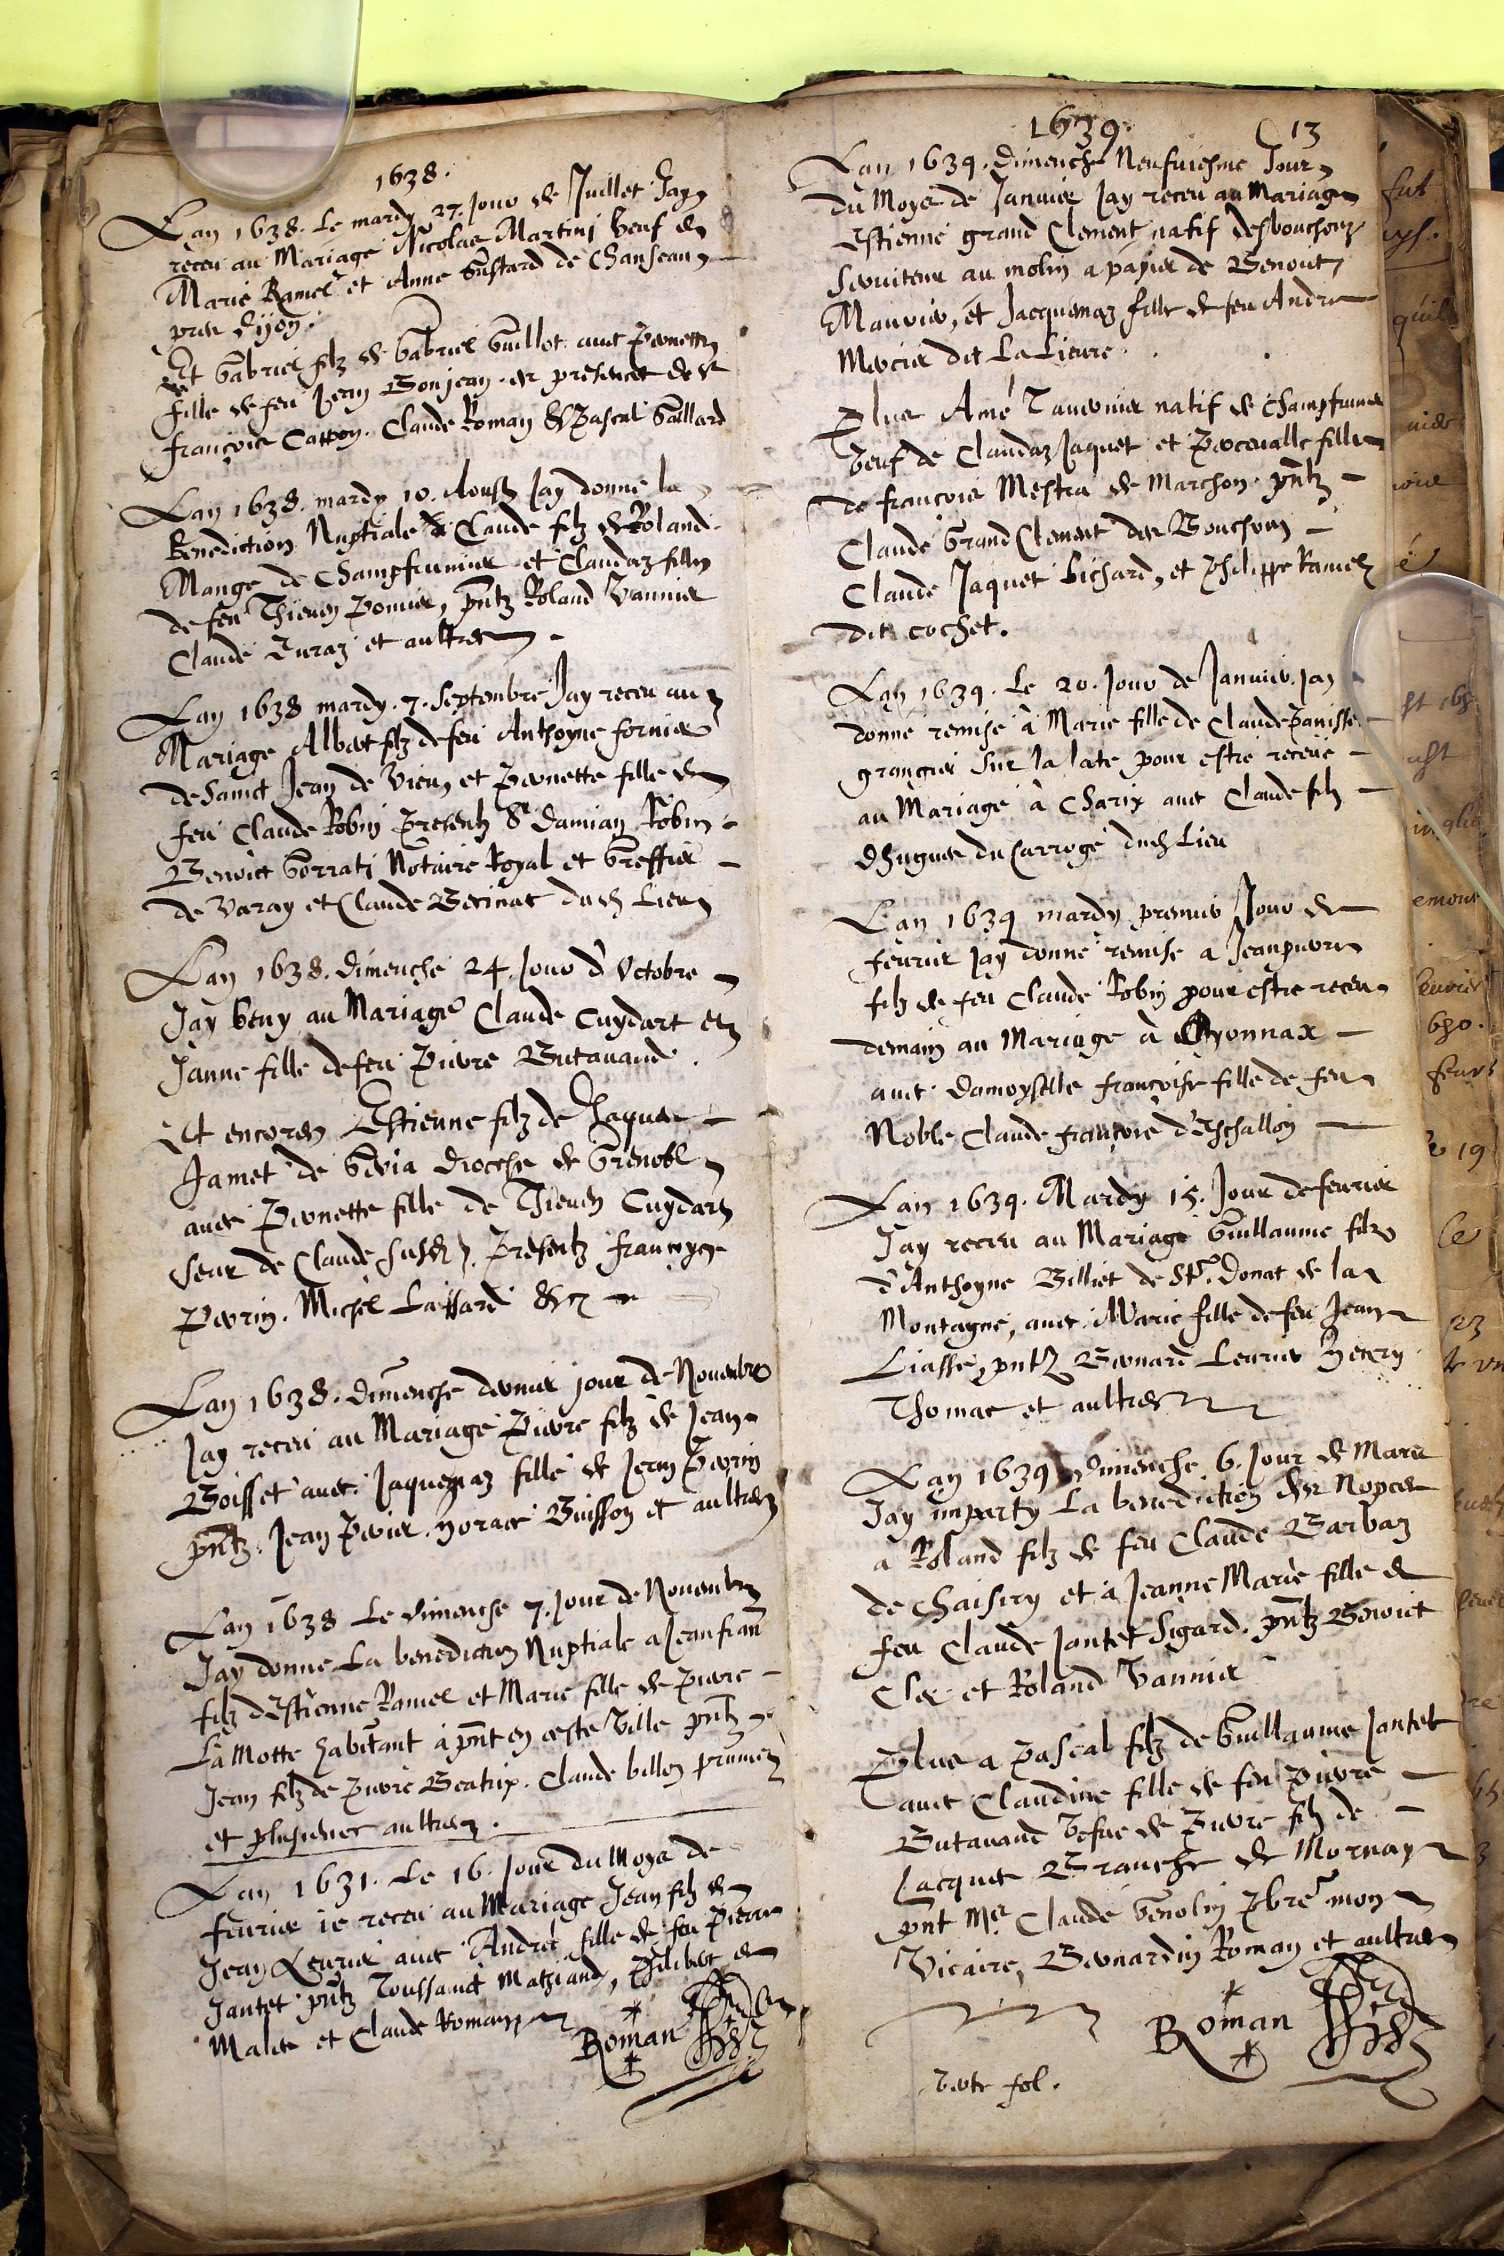 1638.
Lan 1638. Le mardy 27. jour de Juillet Jay
receu au Mariage Nicolas Martinj veuf de
Marie Ramel et Anne Gustard de Chanseau
pres Dijon.
Et Gabriel filz de Gabriel Guillot avec Pernette
fille de feu Jean Bonjean en presence de
françois Catton. Claude Roman & Pascal Gaillard
Lan 1638. mardy 10. Aoust Jay donné la
Benediction Nuptiale à Claude filz de Roland
Mange de Champfrunier et Claudaz fille
de feu Thieven Ponnier, pntz Roland Vannier
Claude Juraz et aultres
Lan 1638 mardy. 7. Septembre Jay receu au
Mariage Albert filz de feu Anthoyne fornier
de Sainct Jean de Vieu, et Pernette fille de
feu Claude Robin Presentz Sr Damian Robin
Benoict Gorrati Notaire Royal et Greffier
de Varay et Claude Berinat dud Lieu
Lan 1638. Dimenche 24. Jour d'Octobre
Jay beny au Mariage Claude Cuydart et
Janne fille de feu Pierre Butavand.
Et encores Estienne filz de Jaques
Jamet de Gevia Diocese de Grenoble
avec Pernette fille de Thieven Cuydart
seur de Claude susd. Presentz françoys
Perrin. Michel Laissard &c
Lan 1638. Dimenche dernier jour de Novembre
Jay receu au Mariage Pierre filz de Jean
Boisset avec Jaquemaz fille de Jean Perrin
pntz. Jean Perier. Horace Buisson et aultres
Lan 1638 Le Dimenche 7. Jour de Novembre
Jay donné La benediction Nuptiale a Jean fran
filz d'Estienne Ramel et Marie fille de Pierre
La Motte habitant à pnt en ceste Ville pntz
Jean filz de Pierre Beatrix. Claude billon prumez
et plusieurs aultres.
Lan 1631. Le 16. Jour du Moys de
feurier ie receu au Mariage Jean filz de
Jean Leurier avec André fille de feu Pierre
Jantet pntz Toussainct Mathiand, Philibert de
Malet et Claude Roman
Roman
1639.
13
Lan 1639. Dimenche Neufuiesme Jour
du Moys de Januier Jay receu au Mariage
Estienne grand Clement natif desbouchoux
Seruiteur au molin a papier de Benoict
Mauvier, et Jacquemaz fille de feu Andre
Mercier dit La Lieure.
Plus Amé Tauernier natif de Champfrunier
Veuf de Claudaz Jaquet et Perceualle fille
de françois Mestra de Marchon. pntz
Claude Grand Clement des Bouchoux
Claude Jaquet Bichard, et Philippe Ramel
dit cochet.
Lan 1639. Le 20. Jour de Januier. Jay
donné remise à Marie fille de Claude Panisset
grangier sur la late pour estre receüe
au Mariage à Charix avec Claude filz
D'hugues du Carroge dud Lieu
Lan 1639 mardy premier Jour de
feurier Jay donné remise a Jeanpierre
filz de feu Claude Robin pour estre receu
demain au Mariage à Oyonnax
avec Damoyselle françoise fille de feu
Noble Claude françois d'Eschallon
Lan 1639. Mardy 15. Jour de feurier
Jay receu au Mariage Guillaume filz
d'Anthoyne Billiet de St. Donat de la
Montagne, avec Marie fille de feu Jean
Liasse, pntz Bernard Leurier Henry
Thomas et aultres
Lan 1639 Dimenche 6. Jour de Mars
Jay imparty La benediction des Nopces
à Roland filz de feu Claude Barbaz
de Chaisiry et à Jeanne Marie fille de
feu Claude Jantet Sigard. pntz Benoict
Cler et Roland Vannier
Plus a Pascal filz de Guillaume Jantet
avec Claudine fille de feu Pierre
Butavand Vefue de Pierre filz de
Jacques Branche de Mornay
pnt Mre Claude Genolin Pbre mon
Vicaire, Bernardin Roman et aultres
Roman
Verte fol.